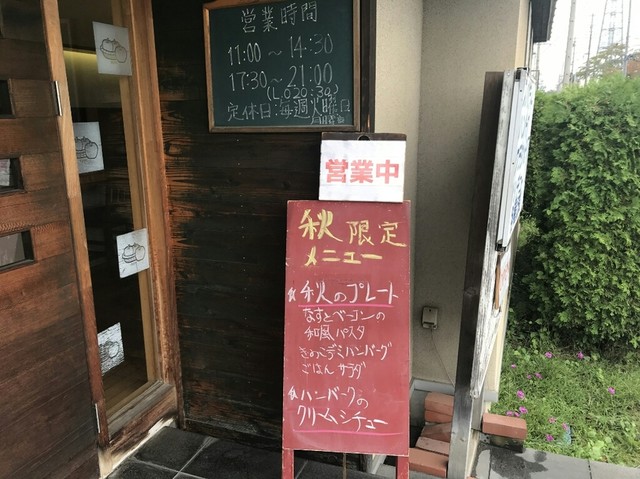 営業時間
11:00〜14:30
17:30〜21:00
(L.O 20:30)
定休日:毎週火曜日
営業中
秋限定
メニュー
☆秋のプレート
なすとベーコンの
和風パスタ
きのこデミハンバーグ
ごはん サラダ
☆ハンバーグの
クリームシチュー